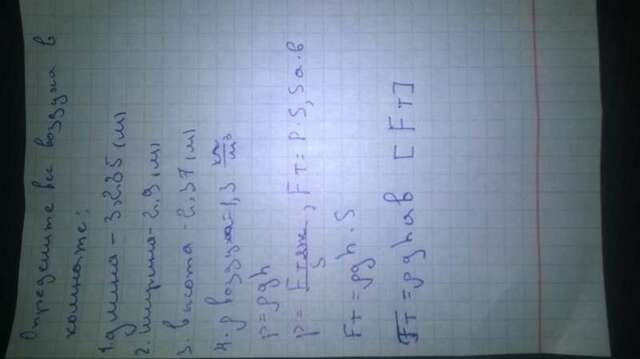 Определите вес воздуха в
комнате:
1. длина - 3,285 (м)
2. ширина - 2,9 (м)
3. высота - 2,37 (м)
4. ρ воздуха = 1,3 кг/м³
p = ρgh
p = Fтяж/S, Fт = p·S, S a·b
Fт = ρgh·S
Fт = ρghab [Fт]